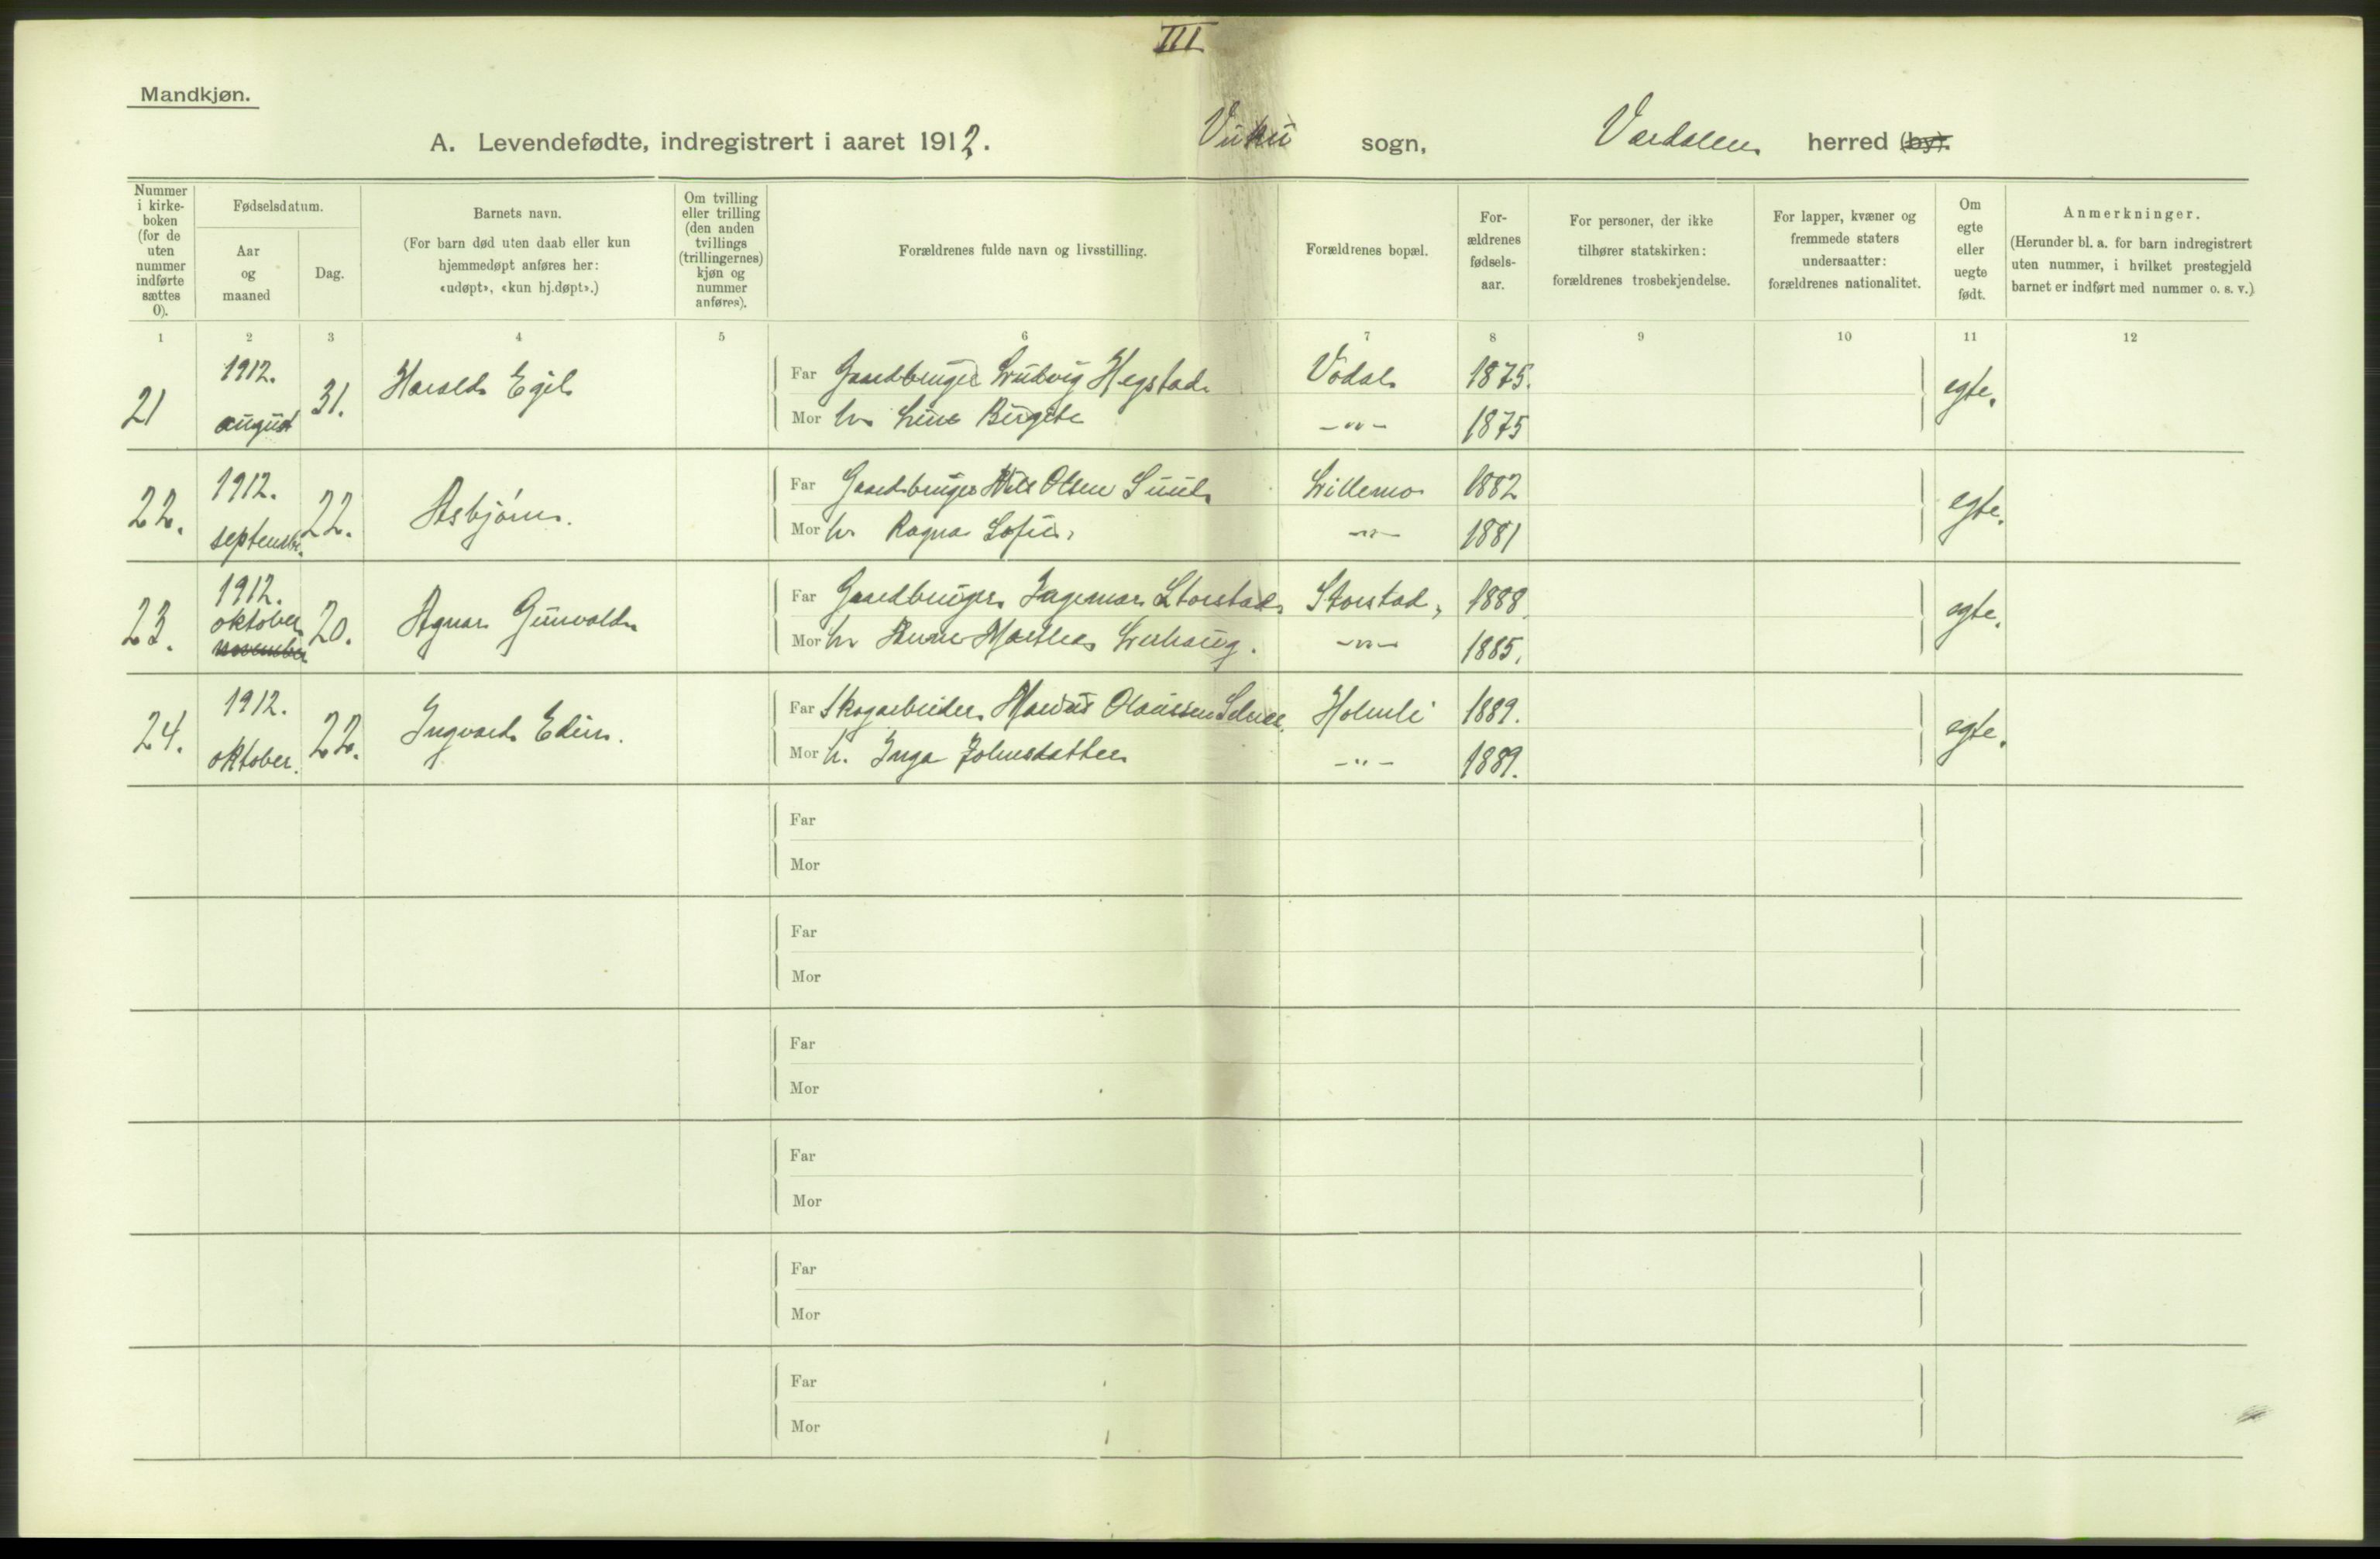 III
Mandkjøn.
A. Levendefødte, indregistrert i aaret 1912. Vuku sogn, Værdalen herred (by).
Nummer i kirke-boken (for de uten nummer indførte sættes 0).
Fødselsdatum.
Aar og maaned
Dag.
Barnets navn.
(For barn død uten daab eller kun hjemmedøpt anføres her: «udøpt», «kun hj.døpt».)
Om tvilling eller trilling (den anden tvillings (trillingernes) kjøn og nummer anføres).
Forældrenes fulde navn og livsstilling.
Forældrenes bopæl.
For-ældrenes fødsels-aar.
For personer, der ikke tilhører statskirken: forældrenes trosbekjendelse.
For lapper, kvæner og fremmede staters undersaatter: forældrenes nationalitet.
Om egte eller uegte født.
Anmerkninger.
(Herunder bl. a. for barn indregistrert uten nummer, i hvilket prestegjeld barnet er indført med nummer o. s. v.)
1 2 3 4 5 6 7 8 9 10 11 12
21 1912. august 31. Harald Egil
Far Gaardbruger Ludvig Hegstad Vodal 1875. egte.
Mor h. Line Birgite -"- 1875
22. 1912. septembr. 22. Asbjørn.
Far Gaardbruger Nils Olsen Suul Lillemo 1882 egte.
Mor h. Ragna Sofie, -"- 1881
23. 1912. oktober november 20. Agnar Gunvald
Far Gaardbruger Ingemar Storstad Storstad, 1888. egte.
Mor h. Anne Marthea Lerhaug. -"- 1885.
24. 1912. oktober. 22. Ingvard Edin.
Far Skogarbeider Marius Olaussen Holmli 1889. egte.
Mor h. Inga Johnsdatter -"- 1889.
Far
Mor
Far
Mor
Far
Mor
Far
Mor
Far
Mor
Far
Mor